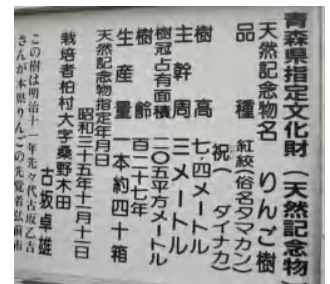 青森県指定文化財(天然記念物)
天然記念物名 りんご樹
品種 紅絞(俗名タマカン)
祝(〃 ダイナカ)
樹高 七・四メートル
主幹周 三メートル
樹冠占有面積 一〇五平方メートル
樹齢 百二十七年
生産量 一本約四十箱
天然記念物指定年月日
昭和三十五年十一月十一日
栽培者柏村大字桑野木田
古坂卓雄
この樹は明治十一年先々代古坂乙吉
さんが本県りんごの先覚者弘前市